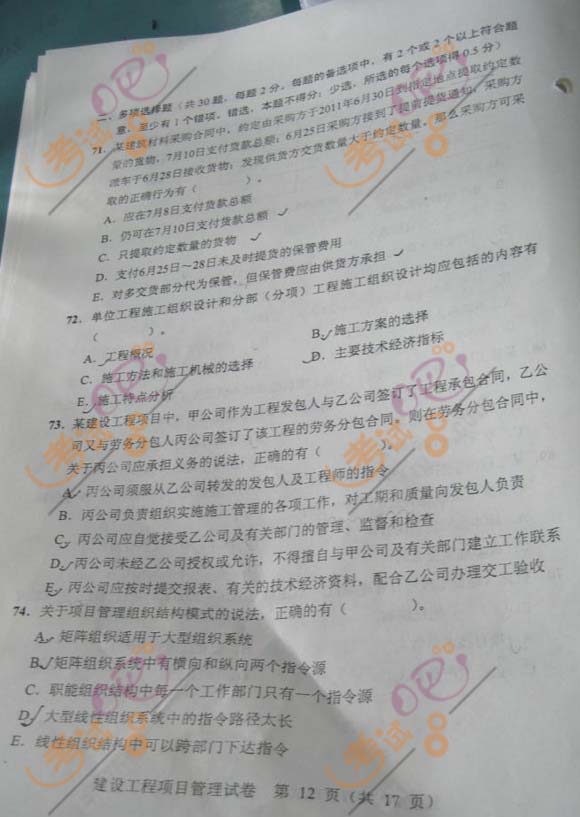 二、多项选择题（共30题，每题2分。每题的备选项中，有2个或2个以上符合题
意，至少有1个错项。错选，本题不得分；少选，所选的每个选项得0.5分）
71. 某建筑材料采购合同中，约定由采购方于2011年6月30日到指定地点提取约定数
量的货物，7月10日支付货款总额；6月25日采购方接到了提前提货通知，采购方
派车于6月28日接收货物；发现供货方交货数量大于约定数量。那么采购方可采
取的正确行为有（ ）。
A. 应在7月8日支付货款总额
B. 仍可在7月10日支付货款总额
C. 只提取约定数量的货物
D. 支付6月25日～28日未及时提货的保管费用
E. 对多交货部分代为保管，但保管费应由供货方承担
72. 单位工程施工组织设计和分部（分项）工程施工组织设计均应包括的内容有
（ ）。
A. 工程概况
B. 施工方案的选择
C. 施工方法和施工机械的选择
D. 主要技术经济指标
E. 施工特点分析
73. 某建设工程项目中，甲公司作为工程发包人与乙公司签订了工程承包合同，乙公
司又与劳务分包人丙公司签订了该工程的劳务分包合同。则在劳务分包合同中，
关于丙公司应承担义务的说法，正确的有（ ）。
A. 丙公司须服从乙公司转发的发包人及工程师的指令
B. 丙公司负责组织实施施工管理的各项工作，对工期和质量向发包人负责
C. 丙公司应自觉接受乙公司及有关部门的管理、监督和检查
D. 丙公司未经乙公司授权或允许，不得擅自与甲公司及有关部门建立工作联系
E. 丙公司应按时提交报表、有关的技术经济资料，配合乙公司办理交工验收
74. 关于项目管理组织结构模式的说法，正确的有（ ）。
A. 矩阵组织适用于大型组织系统
B. 矩阵组织系统中有横向和纵向两个指令源
C. 职能组织结构中每一个工作部门只有一个指令源
D. 大型线性组织系统中的指令路径太长
E. 线性组织结构中可以跨部门下达指令
建设工程项目管理试卷 第 12 页（共 17 页）
考试吧
考试吧
考试吧
考试吧
考试吧
考试吧